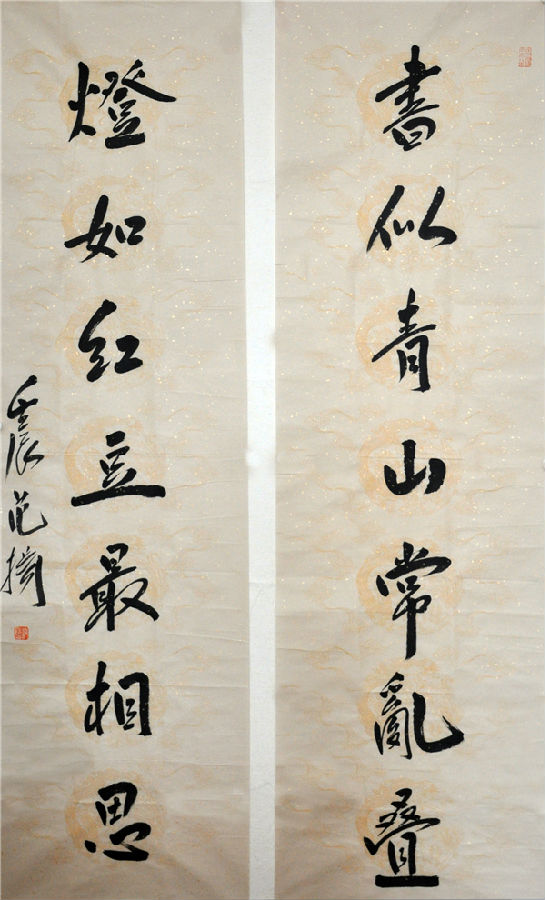 書似青山常亂叠
燈如红豆最相思
壬辰范